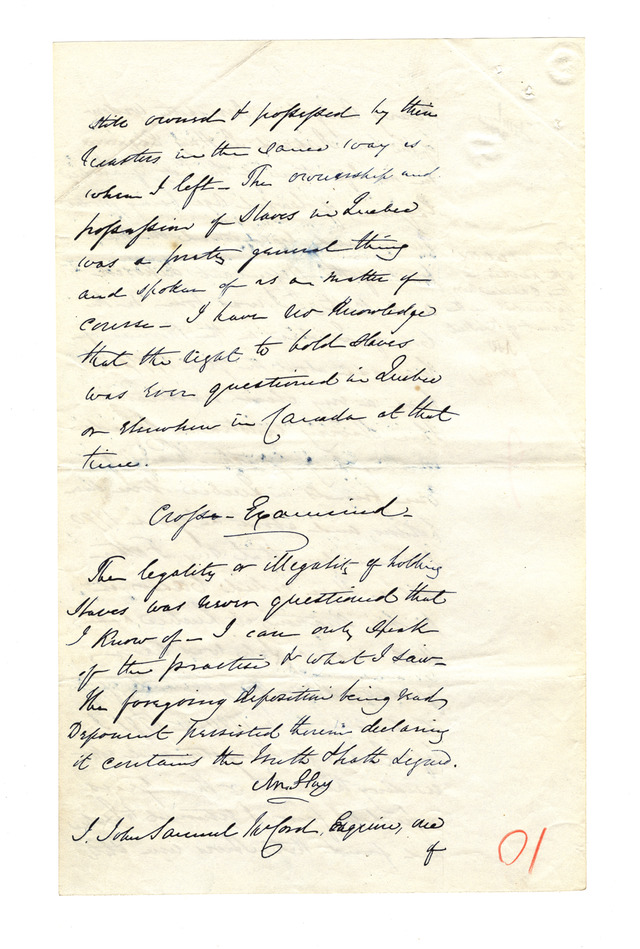 still owned & possessed by their
Masters in the same way as
when I left — The ownership and
possession of Slaves in Quebec
was a pretty general thing
and spoken of as a matter of
course — I have no Knowledge
that the right to hold Slaves
was ever questioned in Quebec
or elsewhere in Canada at that
time.
Cross-Examined —
The legality or illegality of holding
Slaves was never questioned that
I Know of — I can only speak
of the practise & what I saw —
The foregoing deposition being read,
Deponent persisted therein declaring
it contains the truth & hath signed.
I, John Samuel McCord, Esquire, one
of
10